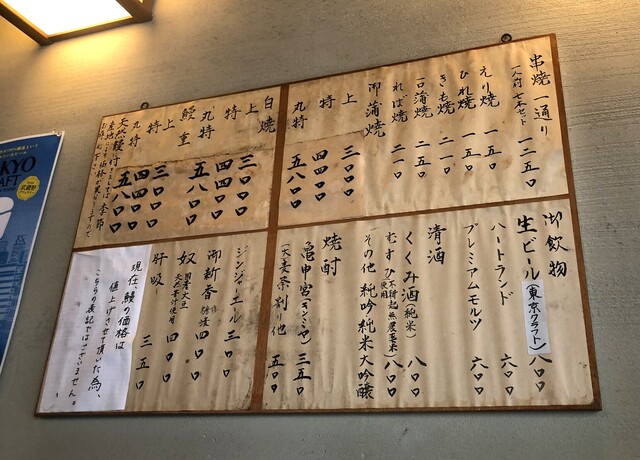 串焼一通り 一二五〇
一人前七本セット
えり焼 一五〇
ひれ焼 一五〇
きも焼 一五〇
一口蒲焼 二五〇
れば焼 二一〇
御蒲焼
上 三〇〇〇
特 四四〇〇
丸特 五八〇〇
白焼
上 三〇〇〇
特 四四〇〇
丸特 五八〇〇
鰻重
上 三〇〇〇
特 四四〇〇
丸特 五八〇〇
御飲物
生ビール(東京クラフト) 八〇〇
ハートランド 六〇〇
プレミアムモルツ 六〇〇
清酒
くくみ酒(純米) 八〇〇
その他 純吟純米大吟醸
焼酎
亀甲宮(キンミヤ) 三五〇
(大麦茶割り)他 五〇〇
ジンジャーエル 三〇〇
御新香 四〇〇
奴 国産大豆 天然苦汁使用 四〇〇
肝吸 三五〇
現在、鰻の価格は
値上げさせて頂いた為、
こちらの表記ではございません。